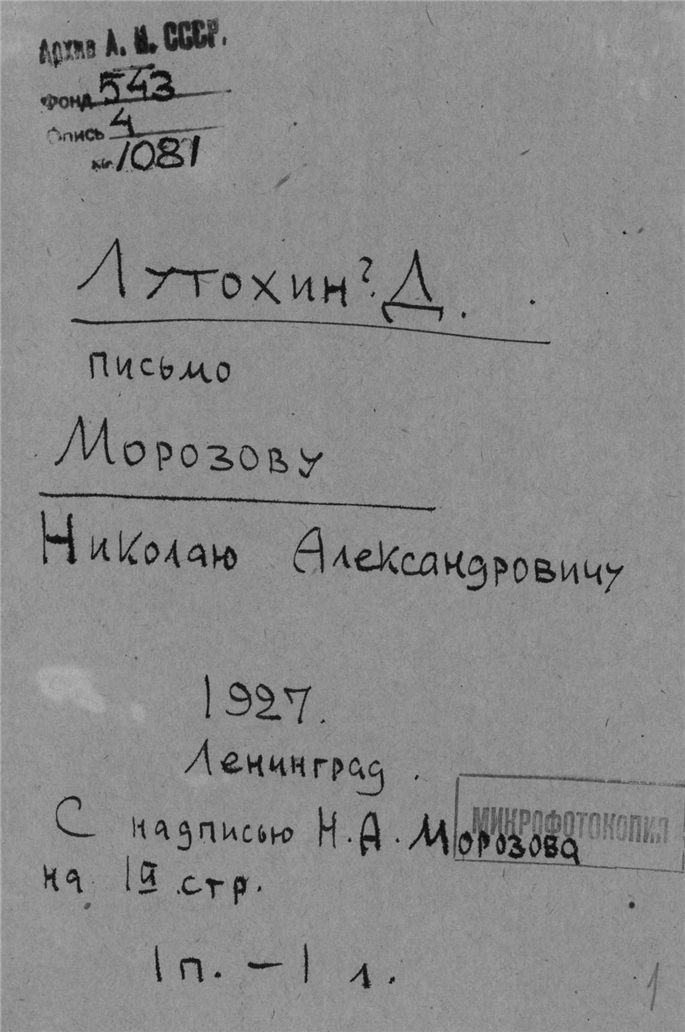 Архив А. Н. СССР.
Фонд 543
Опись 4
№ 1081
Лутохин? Д.
письмо
Морозову
Николаю Александровичу
1927.
Ленинград.
С надписью Н. А. Морозова
МИКРОФОТОКОПИЯ
на 1й стр.
1 п. – 1 л.
1